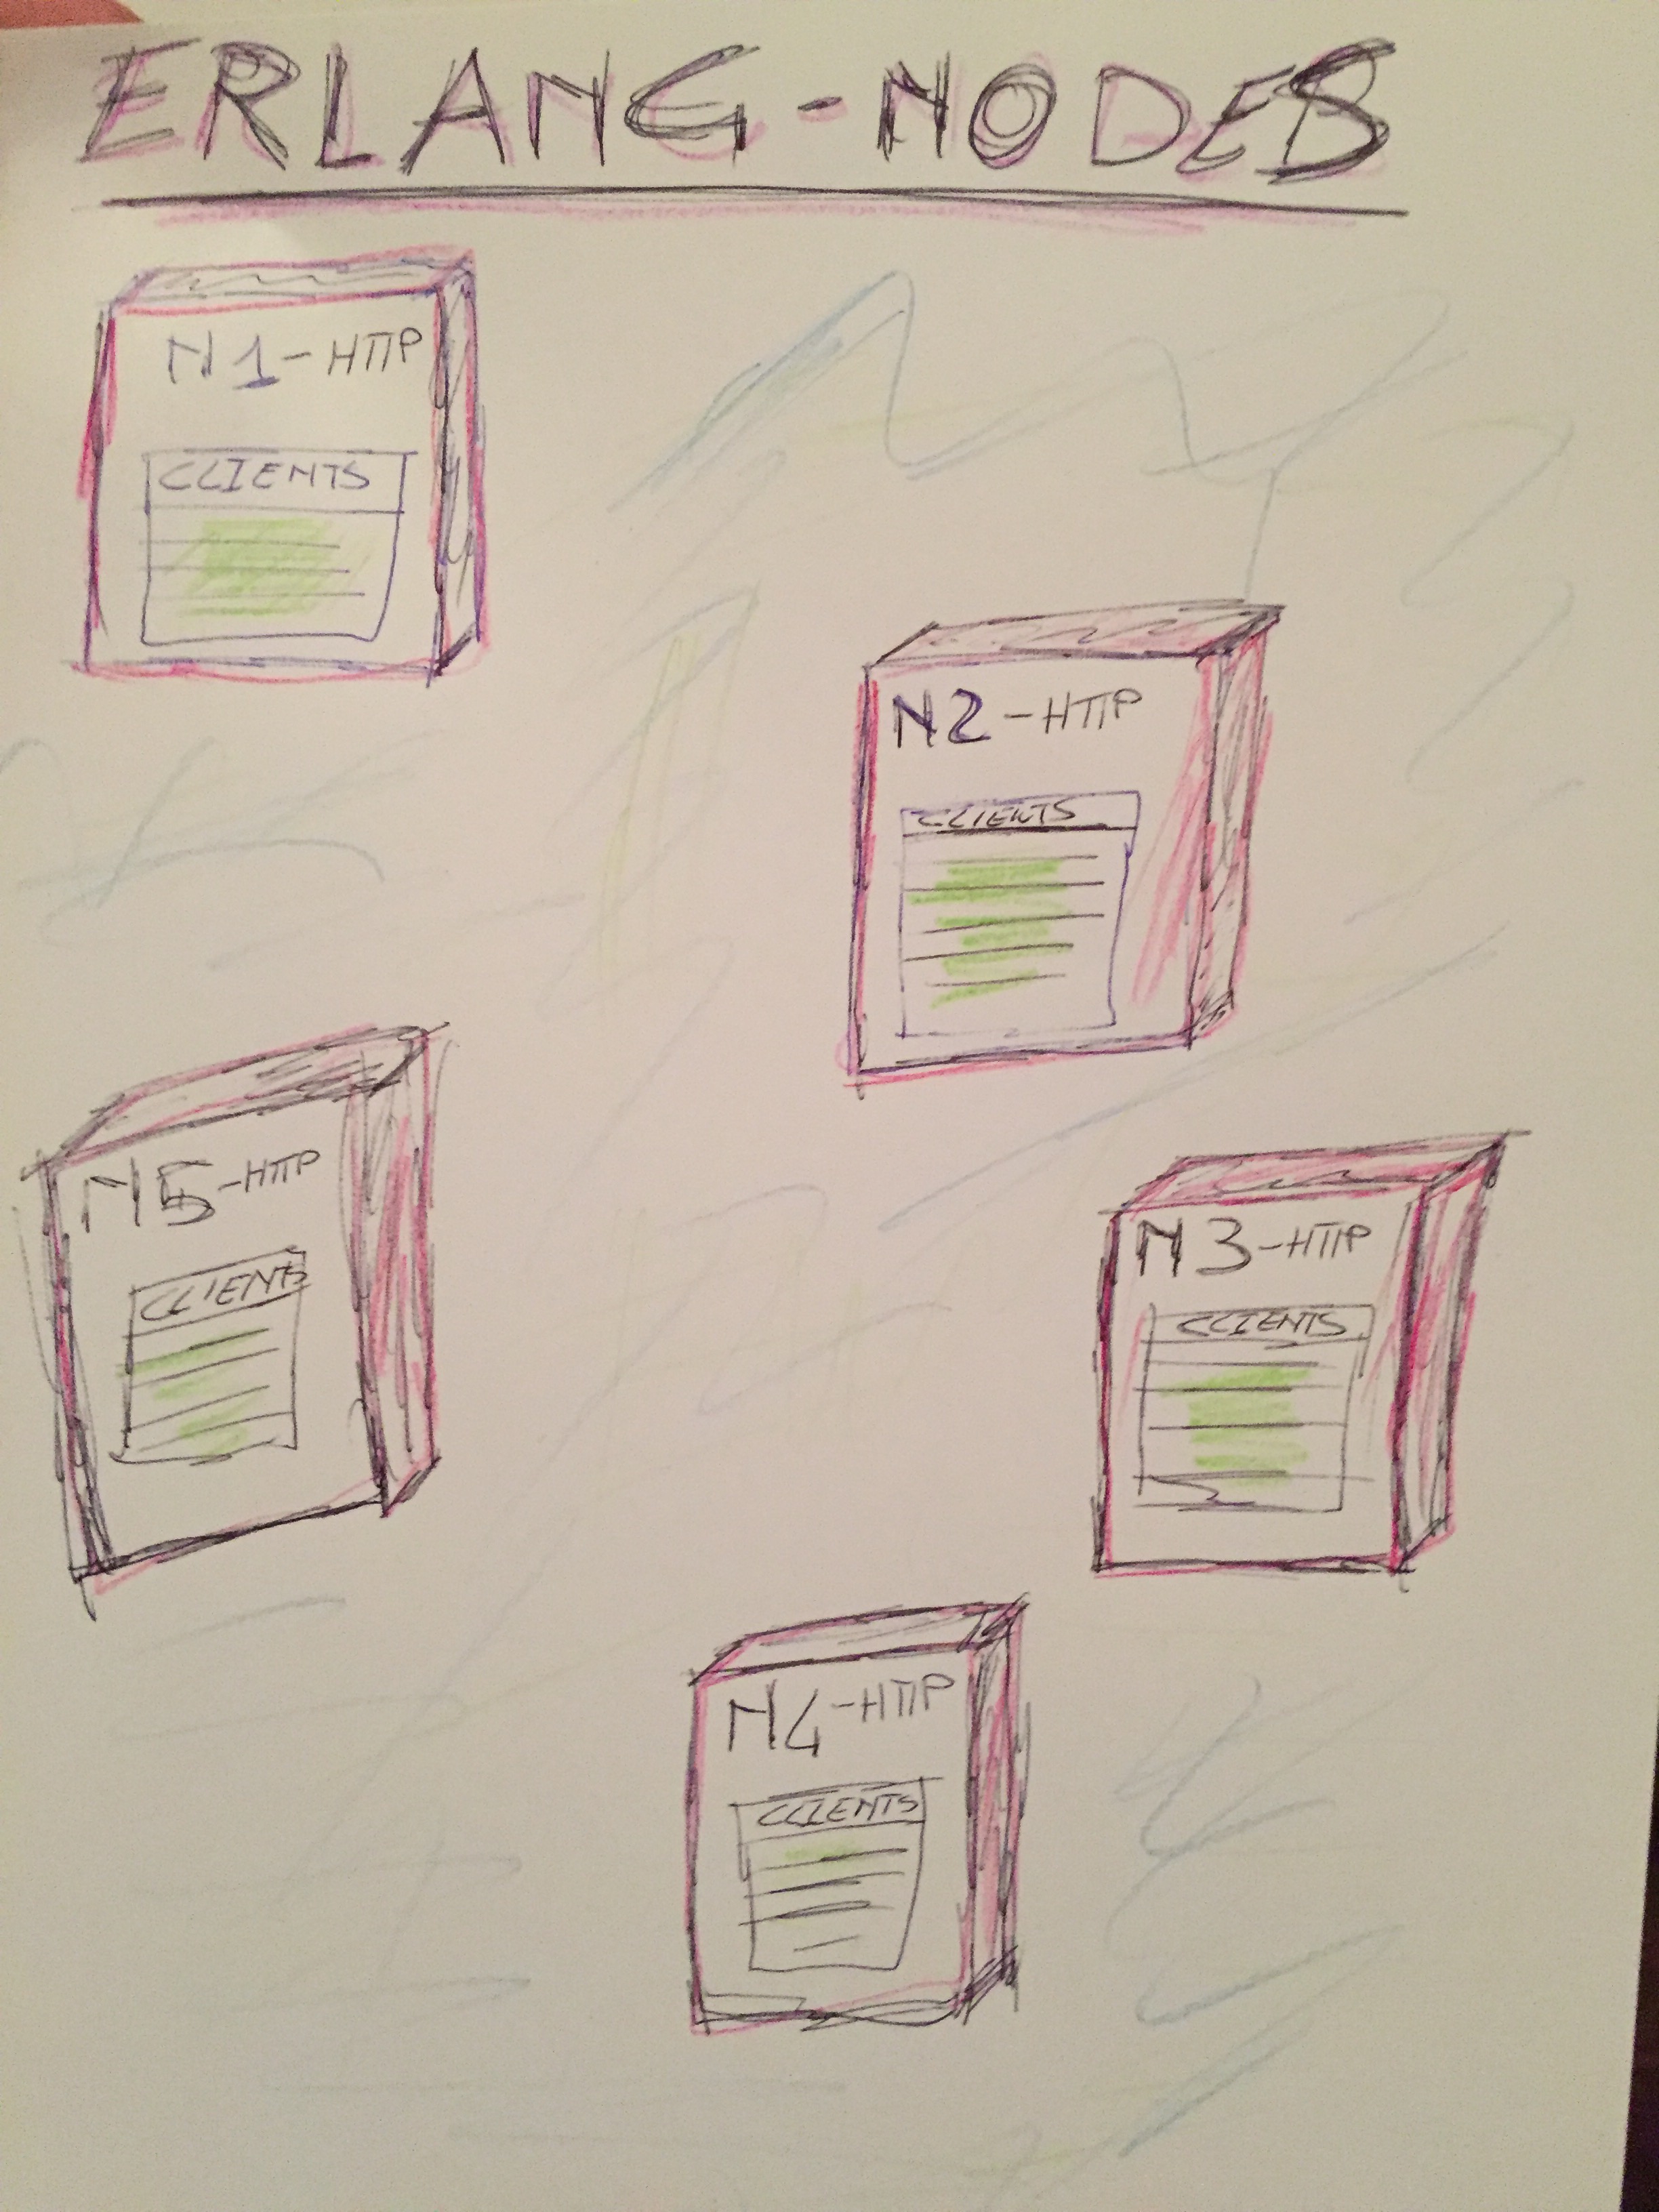 ERLANG-NODES
N1-HTTP
CLIENTS
N2-HTTP
CLIENTS
N5-HTTP
CLIENTS
N3-HTTP
CLIENTS
N4-HTTP
CLIENTS